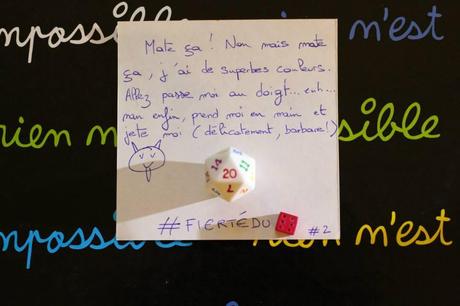 mpossible
n'est
Mate ça ! Non mais mate
ça, j'ai de superbes couleurs.
Allez passe moi au doigt... euh...
nan enfin, prend moi en main et
jete moi (délicatement, barbare!)
rien n
sible
14
20
11
#FIERTÉDU
#2
mpossible
rien n'est